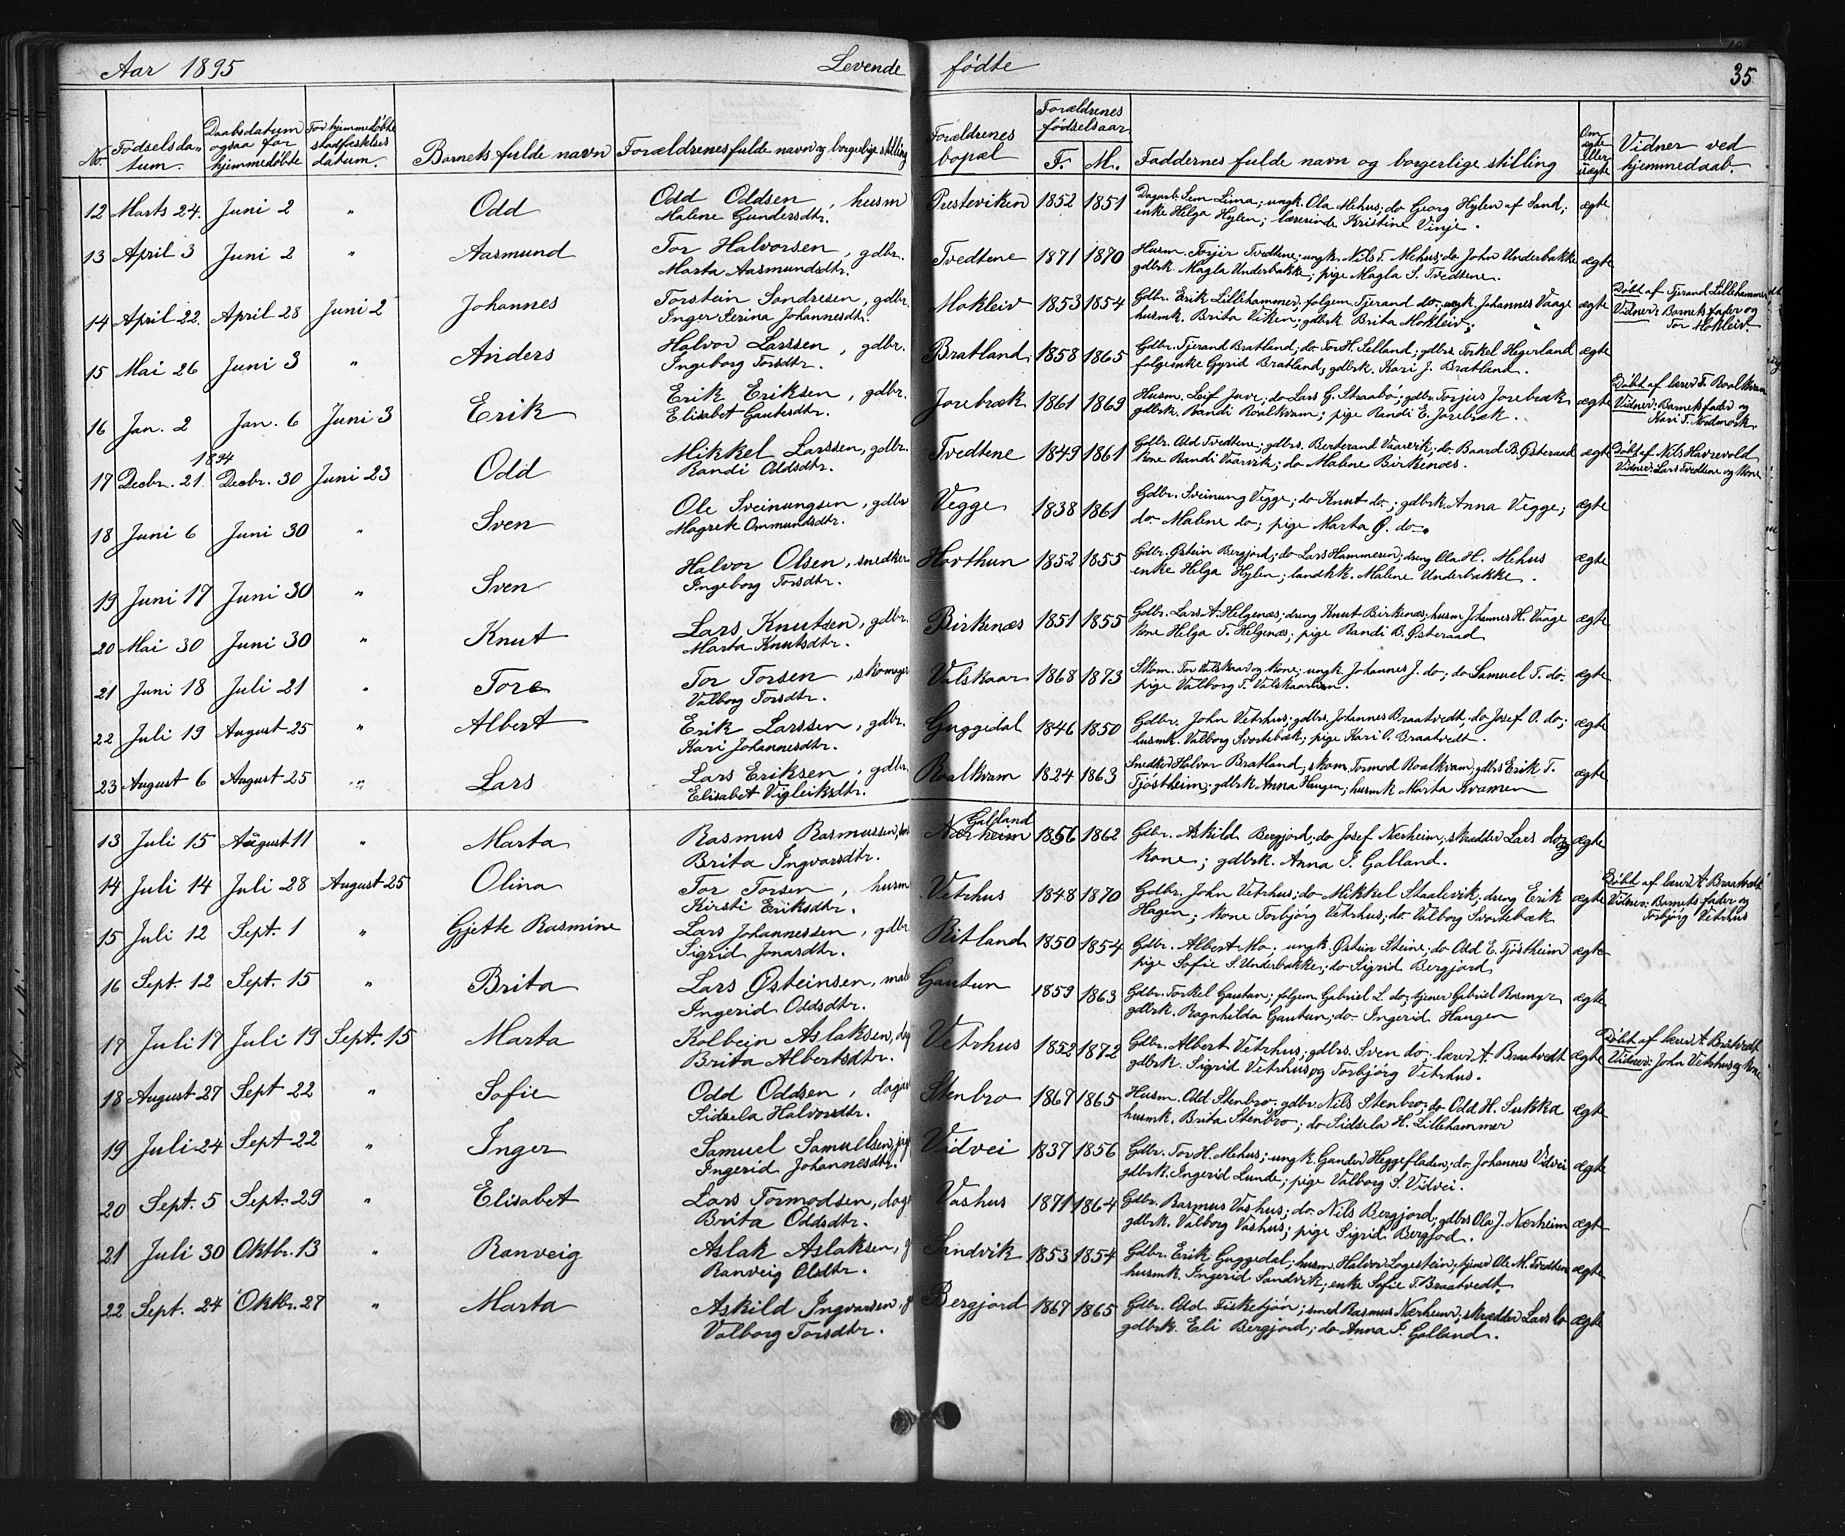 Aar 1895 Levende fødte 35
No. Fødselsdatum. Daabsdatum ogsaa for hjemmedøbte For hjemmedøbte stadfæstelsesdatum. Barnets fulde navn Forældrenes fulde navn og borgerlige stilling Forældrenes bopæl Forældrenes fødselsaar F. M. Faddernes fulde navn og borgerlige stilling Om ægte eller uægte Vidner ved hjemmedaab.
12 Marts 24. Juni 2 " Odd Odd Oddsen, husm Presteviken 1852 1851 Dagarb. Sem Lima; ungk. Ola Mehus; do Georg Hylen af Sand; ægte
Malene Gundersdtr. enke Helga Hylen; lærerinde Kristine Vinje.
13 April 3 Juni 2 " Aasmund Tor Halvorsen, gdbr. Tvedtene 1871 1870 Husm. Torjer Tvedtene; ungk. Nils T. Mehus; do John Underbakke ægte
Marta Aasmundsdtr. gdbrk. Magla Underbakke; pige Magla S. Tvedtene.
14 April 22. April 28 Juni 2 Johannes Torstein Sondresen, gdbr. Mokleiv 1853 1854 Gdbr. Erik Lillehammer; folgem. Tjerand do; ungk. Johannes Vaage ægte Døbt af Tjerand Lillehammer
Inger Serina Johannesdtr. husmk. Brita Viken; gdbrk. Brita Mokleiv. Vidner: Barnets fader og
Tor Mokleiv
15 Mai 26 Juni 3 " Anders Halvor Larssen, gdbr. Bratland 1858 1865 Gdbr. Tjerand Bratland; do Tor H. Selland; gdbrs. Torkel Hegerland ægte
Ingeborg Torsdtr. folgenke Gyrid Bratland, gdbrk. Kari J. Bratland.
16 Jan. 2 Jan. 6 Juni 3 Erik Erik Eriksen, gdbr. Jorebræk 1861 1869 Husm. Leif Juvr; do Lars G. Straabø; gdbr. Torjus Jorebræk ægte Døbt af lærer T. Roalkvam
Elisabet Gautesdtr. gdbrk. Randi Roalkvam; pige Randi E. Jorebræk. Vidner: Barnets fader og
Kari T. Nordmork
1894
17 Decbr. 21 Decbr. 30 Juni 23 Odd Mikkel Larssen, gdbr. Tvedtene 1849 1861 Gdbr. Odd Tvedtene; gdbrs. Berderand Vaarvik; do Baard B. Østeraad ægte Døbt af Nils Havrevold
Randi Oddsdtr. kone Randi Vaarvik; do Malene Birkenæs. Vidner: Lars Tvedtene og kone
18 Juni 6 Juni 30 " Sven Ole Sveinungsen, gdbr Vegge 1838 1861 Gdbr. Sveinung Vegge; do Knut do; gdbrk. Anna Vegge; ægte
Magrete Ommundsdtr. do Malene do; pige Marta Ø. do.
19 Juni 17 Juni 30 " Sven Halvor Olsen, snedker Horthun 1852 1855 Gdbr. Østein Bergjord; do Lars Hammersen; dreng Ola H. Mehus ægte
Ingeborg Torsdtr. enke Helga Hylen; landhk. Malene Underbakke.
20 Mai 30 Juni 30 " Knut Lars Knutsen, gdbr. Birknæs 1851 1855 Gdbr. Lars A. Helgenæs; dreng Knut Birkenæs; husm Johannes H. Vaage ægte
Marta Knutsdtr. kone Helga T. Helgenæs; pige Randi B. Østeraad
21 Juni 18 Juli 21 " Tore Tor Torsen, skomager Valskaar 1868 1873 Skom. Tor Valskaar og kone; ungk. Johannes J. do; do Samuel T. do. ægte
Valborg Torsdtr. pige Valborg T. Valskaar.
22 Juli 19 August 25 " Albert Erik Larssen, gdbr. Guggedal 1846 1850 Gdbr. John Vetrhus; gdbrs. Johannes Braatvedt; do Josef O. do; ægte
Kari Johannesdtr. husmk. Valborg Svortebæk; pige Kari O. Braatvedt.
23 August 6 August 25 " Lars Lars Eriksen, gdbr Roalkvam 1824 1863 Snedker Halvor Bratland; skom. Tormod Roalkvam; gdbrs Erik T. ægte
Elisabet Vigleiksdtr. Tjöstheim; gdbrk Anna Haugen; husmk Marta Kvamen
13 Juli 15 August 11 " Marta Rasmus Rasmussen, Nærheim Galland 1856 1862 Gdbr. Askild Bergjord; do Josef Nærheim; skrædder Lars do og ægte
Brita Ingvarsdtr. kone; gdbrk. Anna I. Galland.
14 Juli 14 Juli 28 August 25 Olina Tor Torsen, husm Vetrhus 1848 1870 Gdbr. John Vetrhus; do Mikkel Staalevik; dreng Erik ægte Døbt af lærer A. Braatvedt
Kirsti Eriksdtr. Hagen; kone Torbjörg Vetrhus; do Valborg Svortebæk Vidner: Barnets fader og
Torbjörg Vetrhus
15 Juli 12 Sept. 1 " Gjette Rasmine Lars Johannessen, gdbr Ritland 1850 1854 Gdbr. Albert Mo; ungk. Østein Steine; do Odd E. Tjöstheim ægte
Sigrid Jonasdtr. pige Sofie S. Underbakke; do Sigrid Bergjord
16 Sept. 12 Sept. 15 " Brita Lars Østeinsen, mal Gautun 1859 1863 Gdbr. Torkel Gautun; folgem. Gabriel L. do; tjener Gabriel Rosmyr ægte
Ingerid Oddsdtr. gdbrk. Ragnhilda Gautun; do Ingerid Haugen
17 Juli 17 Juli 19 Sept. 15 Marta Kolbein Aslaksen, dag Vetrhus 1852 1872 Gdbr. Albert Vetrhus; gdbrs. Sven do; lærer A. Braatvedt ægte Døbt af lærer A. Braatvedt
Brita Albertsdtr. gdbrk. Sigrid Vetrhus og Torbjörg Vetrhus. Vidner: John Vetrhus og kone
18 August 27 Sept 22 " Sofie Odd Oddsen, dagar Stenbro 1867 1865 Husm. Odd Stenbro; gdbr. Nils Stenbro; do Odd H. Sukka ægte
Sidsela Halvorsdtr. husmk. Brita Stenbro; do Sidsela H. Lillehammer
19 Juli 24 Sept 22 " Inger Samuel Samuelsen, Vidvei 1837 1856 Gdbr. Tor H. Mehus; ungk. Gunder Heggefladen; do Johannes Vidvei ægte
Ingerid Johannesdtr. gdbrk. Ingerid Lunde; pige Valborg S. Vidvei.
20 Sept. 5 Sept. 29 " Elisabet Lars Tormodsen, dag Vashus 1871 1864 Gdbr. Rasmus Vashus; do. Nils Bergjord; gdbrs Ola J. Nærheim ægte
Brita Oddsdtr. gdbrk. Valborg Vashus; pige Sigrid Bergjod.
21 Juli 30 Oktbr. 13 " Ranveig Aslak Aslaksen, g Sandvik 1853 1854 Gdbr. Erik Guggedal; husm. Halvor Logestein; tjener Ole M. Tvedtene ægte
Ranveig Olsdtr. husmk. Ingerid Sandvik; enke Sofie T. Braatvedt
22 Sept. 24 Oktbr. 27 " Marta Askild Ingvarsen, g Bergjord 1867 1865 Gdbr. Odd Fisketjön; smed Rasmus Nærheim; skrædder Lars do ægte
Valborg Torsdtr. gdbrk. Eli Bergjord; do Anna I. Galland.